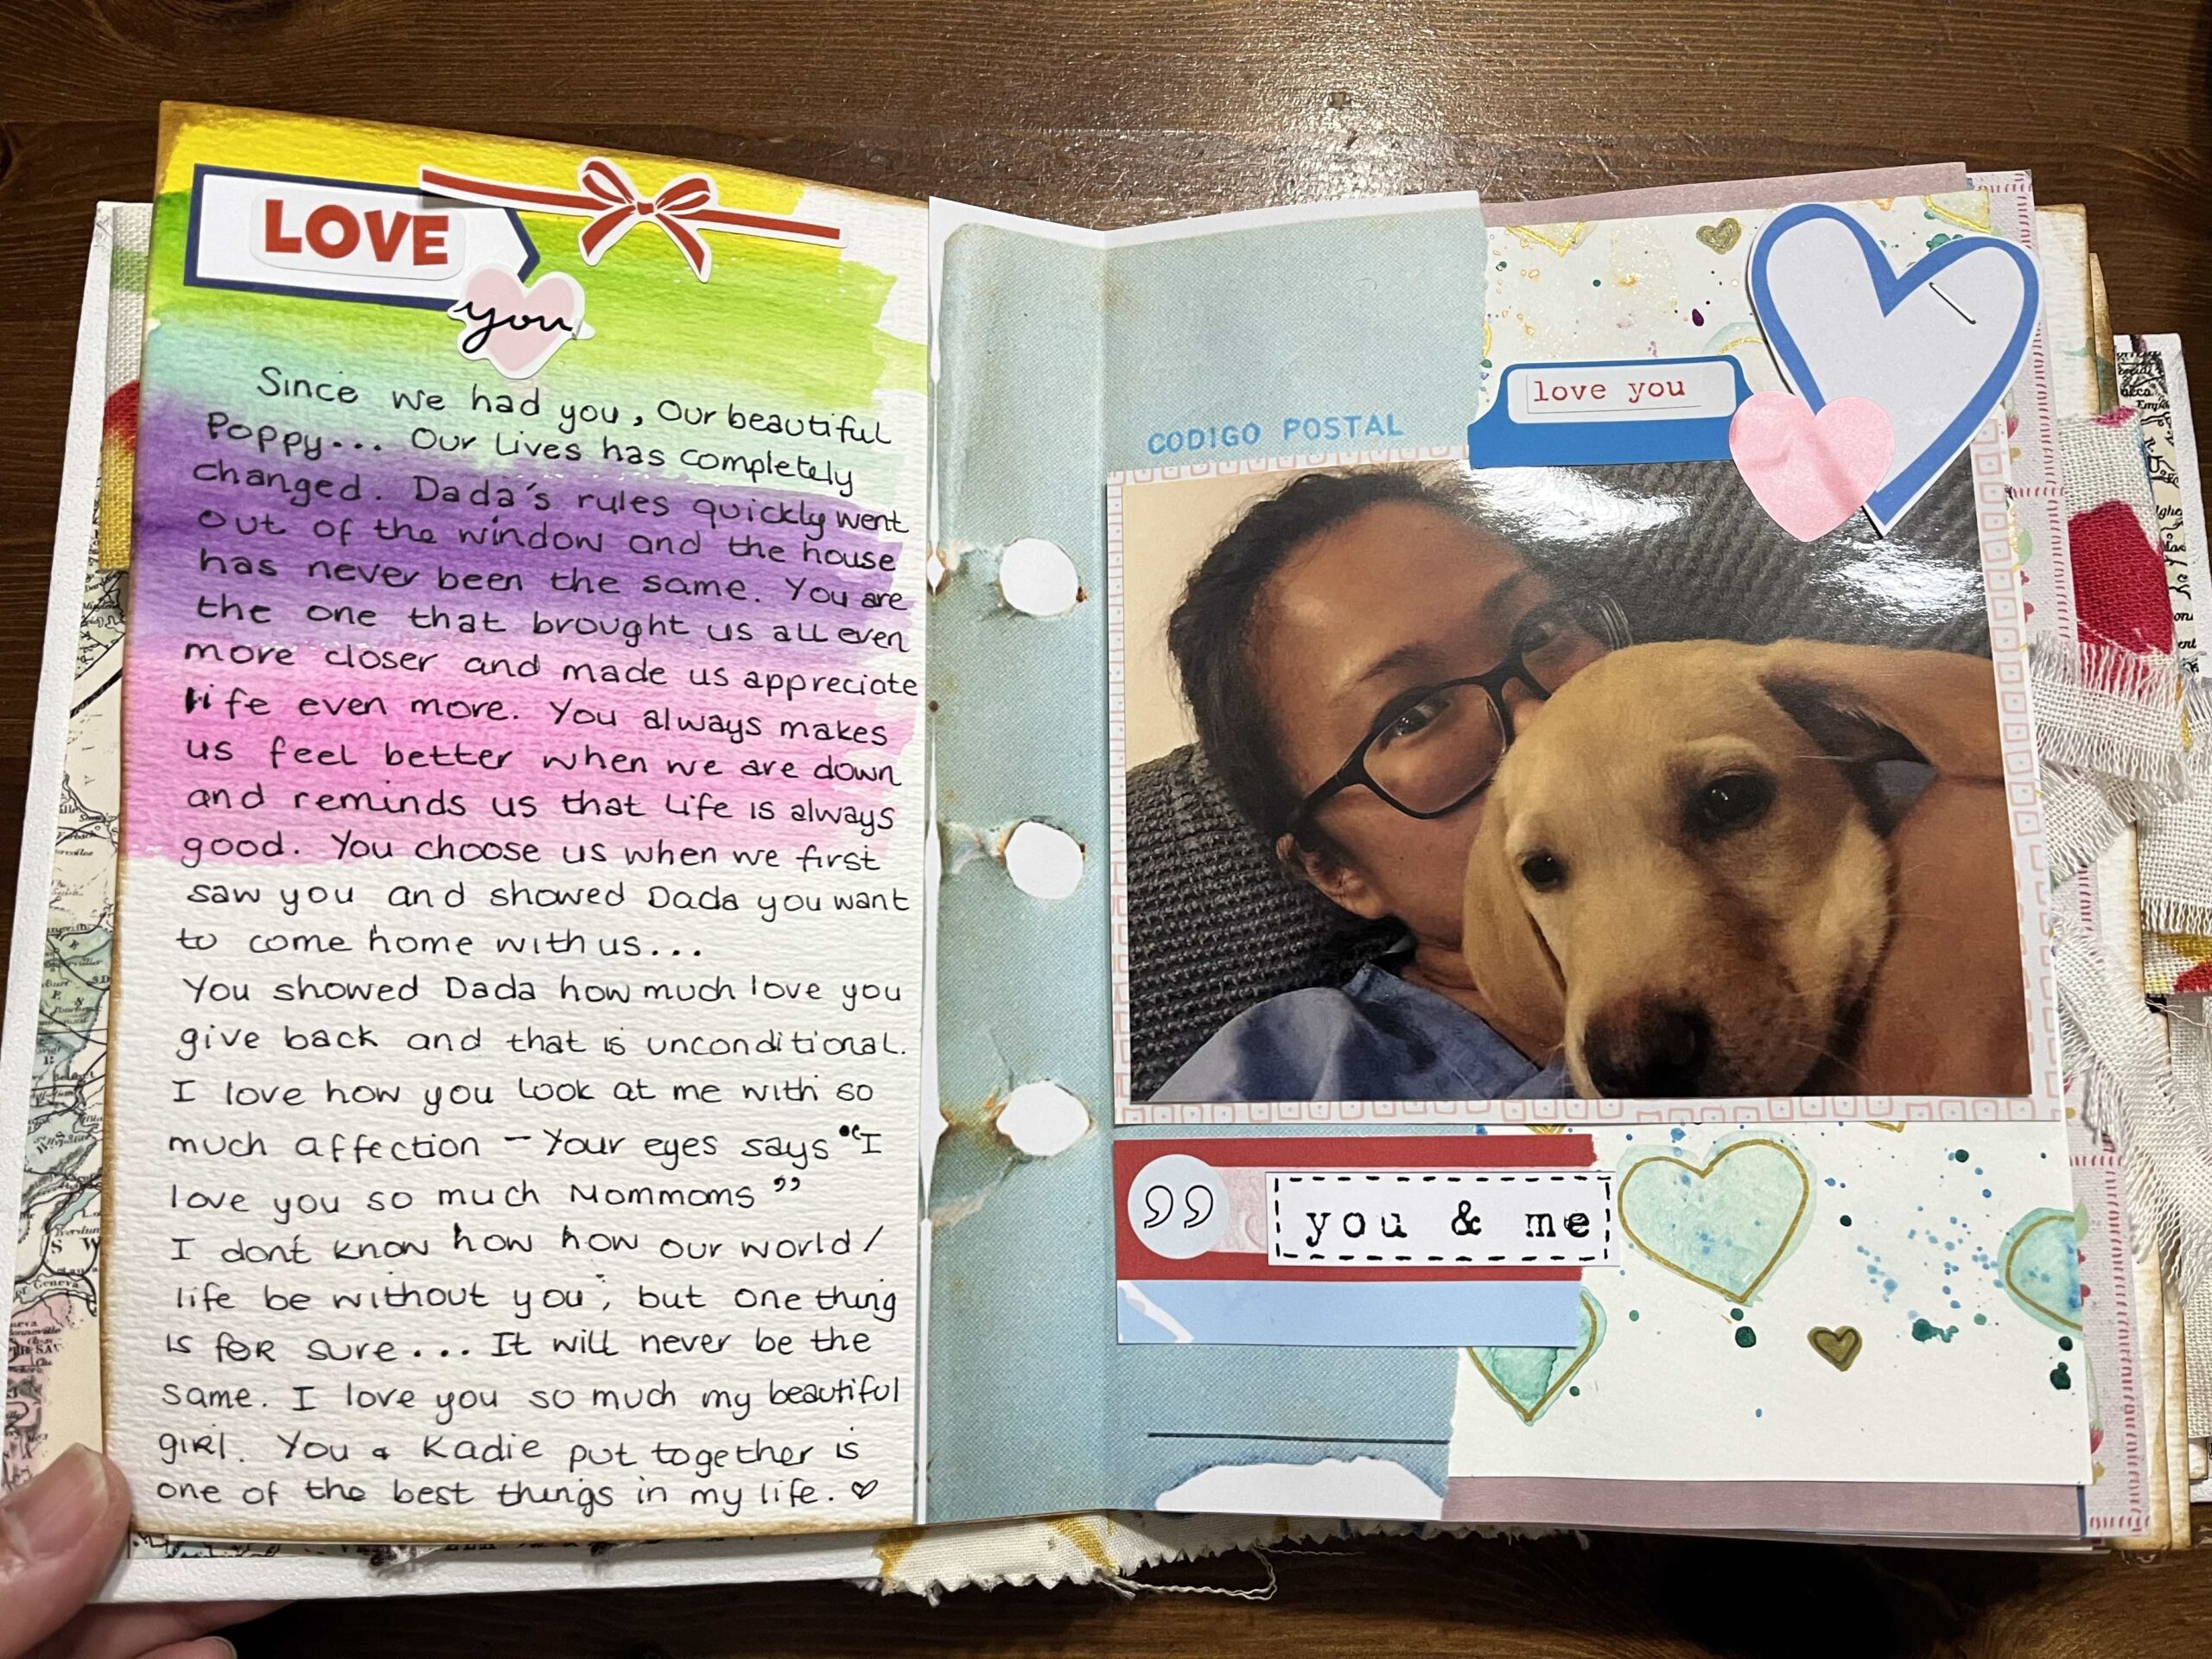 LOVE
you
Since we had you, Our beautiful
Poppy... Our Lives has completely
changed. Dada's rules quickly went
out of the window and the house
has never been the same. You are
the one that brought us all even
more closer and made us appreciate
life even more. You always makes
us feel better when we are down
and reminds us that Life is always
good. You choose us when we first
saw you and showed Dada you want
to come home with us...
You showed Dada how much love you
give back and that is unconditional.
I love how you look at me with so
much affection - Your eyes says "I
love you so much Mommoms"
I dont know how how our world/
life be without you, but one thing
is for sure... It will never be the
same. I love you so much my beautiful
girl. You & Kadie put together is
one of the best things in my life. ♡
love you
CODIGO POSTAL
99 you & me
Geneva
S W